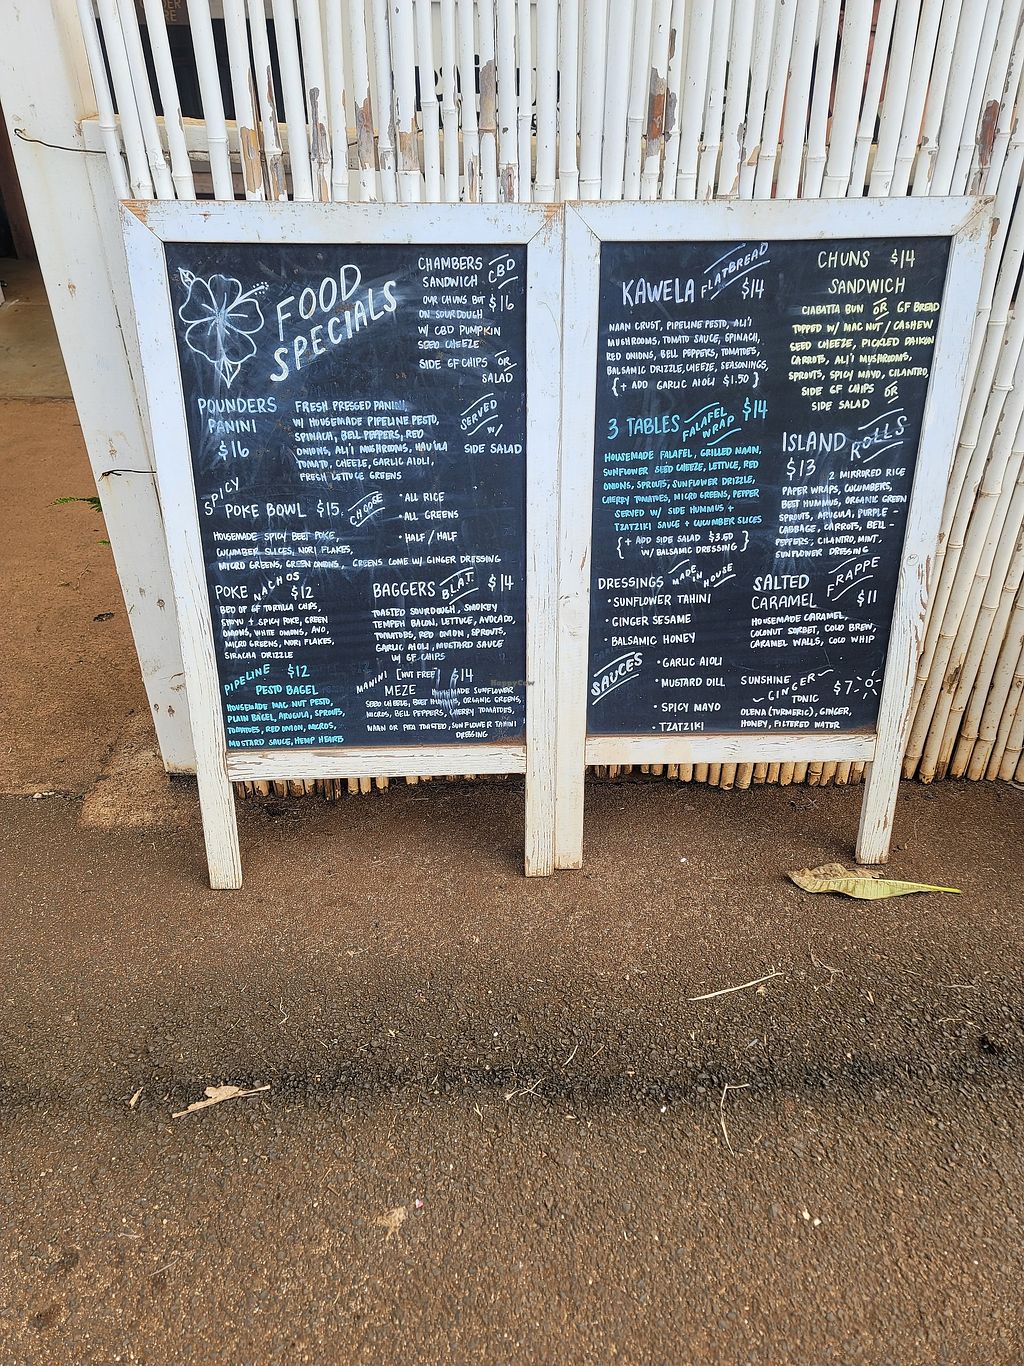 FOOD
SPECIALS
CHAMBERS CBD
SANDWICH
OUR CHUNS BUT $16
ON SOURDOUGH
W/ CBD PUMPKIN
SEED CHEEZE
SIDE GF CHIPS OR
SALAD
POUNDERS
PANINI
$16
FRESH PRESSED PANINI,
W/ HOUSEMADE PIPELINE PESTO,
SPINACH, BELL PEPPERS, RED
ONIONS, ALI'I MUSHROOMS, HAU'ULA
TOMATO, CHEEZE, GARLIC AIOLI,
FRESH LETTUCE GREENS
SERVED
W/
SIDE SALAD
SPICY
POKE BOWL $15.
CHOOSE
• ALL RICE
• ALL GREENS
• HALF / HALF
HOUSEMADE SPICY BEET POKE,
CUCUMBER SLICES, NORI FLAKES,
MICRO GREENS, GREEN ONIONS, GREENS COME W/ GINGER DRESSING
POKE NACHOS
$12
BED OF GF TORTILLA CHIPS,
SHOYU + SPICY POKE, GREEN
ONIONS, WHITE ONIONS, AVO,
MICRO GREENS, NORI FLAKES,
SIRACHA DRIZZLE
BAGGERS B.L.A.T. $14
TOASTED SOURDOUGH, SMOKEY
TEMPEH BACON, LETTUCE, AVOCADO,
TOMATOES, RED ONION, SPROUTS,
GARLIC AIOLI, MUSTARD SAUCE
W/ GF CHIPS
PIPELINE $12
PESTO BAGEL
HOUSEMADE MAC NUT PESTO,
PLAIN BAGEL, ARUGULA, SPROUTS,
TOMATOES, RED ONION, MICROS,
MUSTARD SAUCE, HEMP HEARTS
MANINI [NUT FREE] $14
MEZE HOUSEMADE SUNFLOWER
SEED CHEEZE, BEET HUMMUS, ORGANIC GREENS,
MICROS, BELL PEPPERS, CHERRY TOMATOES,
NAAN OR PITA TOASTED, SUNFLOWER TAHINI
DRESSING
HappyCow
KAWELA FLATBREAD
$14
NAAN CRUST, PIPELINE PESTO, ALI'I
MUSHROOMS, TOMATO SAUCE, SPINACH,
RED ONIONS, BELL PEPPERS, TOMATOES,
BALSAMIC DRIZZLE, CHEEZE, SEASONINGS,
{+ ADD GARLIC AIOLI $1.50}
CHUNS $14
SANDWICH
CIABATTA BUN OR GF BREAD
TOPPED W/ MAC NUT / CASHEW
SEED CHEEZE, PICKLED DAIKON
CARROTS, ALI'I MUSHROOMS,
SPROUTS, SPICY MAYO, CILANTRO,
SIDE GF CHIPS OR
SIDE SALAD
3 TABLES FALAFEL
WRAP $14
HOUSEMADE FALAFEL, GRILLED NAAN,
SUNFLOWER SEED CHEEZE, LETTUCE, RED
ONIONS, SPROUTS, SUNFLOWER DRIZZLE,
CHERRY TOMATOES, MICRO GREENS, PEPPER
SERVED W/ SIDE HUMMUS +
TZATZIKI SAUCE + CUCUMBER SLICES
{+ ADD SIDE SALAD $3.50
W/ BALSAMIC DRESSING}
ISLAND ROLLS
$13 2 MIRRORED RICE
PAPER WRAPS, CUCUMBERS,
BEET HUMMUS, ORGANIC GREEN
SPROUTS, ARUGULA, PURPLE -
CABBAGE, CARROTS, BELL -
PEPPERS, CILANTRO, MINT,
SUNFLOWER DRESSING
DRESSINGS MADE IN HOUSE
• SUNFLOWER TAHINI
• GINGER SESAME
• BALSAMIC HONEY
SAUCES
• GARLIC AIOLI
• MUSTARD DILL
• SPICY MAYO
• TZATZIKI
SALTED FRAPPE
CARAMEL $11
HOUSEMADE CARAMEL,
COCONUT SORBET, COLD BREW,
CARAMEL WALLS, COCO WHIP
SUNSHINE
GINGER
TONIC
$7
OLENA (TURMERIC), GINGER,
HONEY, FILTERED WATER